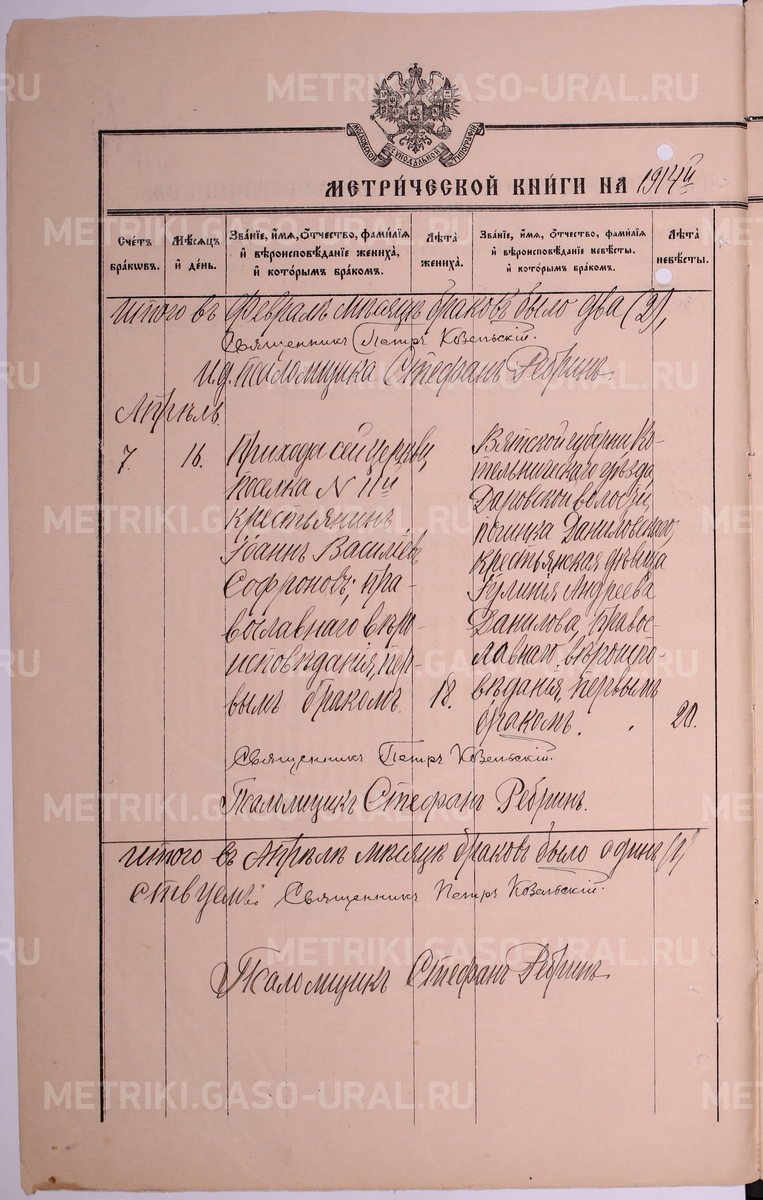 METRIKI.GASO-URAL.RU
МОСКОВСКОЙ СѴНОДАЛЬНОЙ ТИПОГРАФІИ
МЕТРИ́ЧЕСКОЙ КНИ́ГИ НА 1914й
Сче́тъ бра́ковъ.
Мѣ́сѧцъ й де́нь.
Зва́нїе, и́мѧ, о́тчество, фами́лїѧ й вѣроисповѣ́данїе жениха̀, й кото́рымъ бра́комъ.
Лѣ́та жениха̀.
Зва́нїе, и́мѧ, о́тчество, фами́лїѧ й вѣроисповѣ́данїе невѣ́сты. й кото́рымъ бра́комъ.
Лѣ́та невѣ́сты.
Итого въ Февралѣ мѣсяцѣ браковъ было два (2),
Священникъ Петръ Козельскій.
и. д. псаломщика Стефанъ Ребринъ.
Апрѣль.
7.
16.
Прихода сей церкви,
поселка N 11й
крестьянинъ
Іоаннъ Василіевъ
Софроновъ; пра-
вославнаго вѣро-
исповѣданія, пер-
вымъ бракомъ.
18.
Вятской губерни Ко-
тельническаго уѣзда,
Даровской волости,
починка Даниловскаго,
крестьянская дѣвица
Іулинія Андреева
Данилова, правос-
лавнаго вѣроиспо-
вѣданія, первымъ
бракомъ.
20.
Священникъ Петръ Козельскій.
Псаломщикъ Стефанъ Ребринъ.
Итого въ Апрѣлѣ мѣсяцѣ браковъ было одинъ (1)
Священникъ Петръ Козельскій.
Псаломщикъ Стефанъ Ребринъ